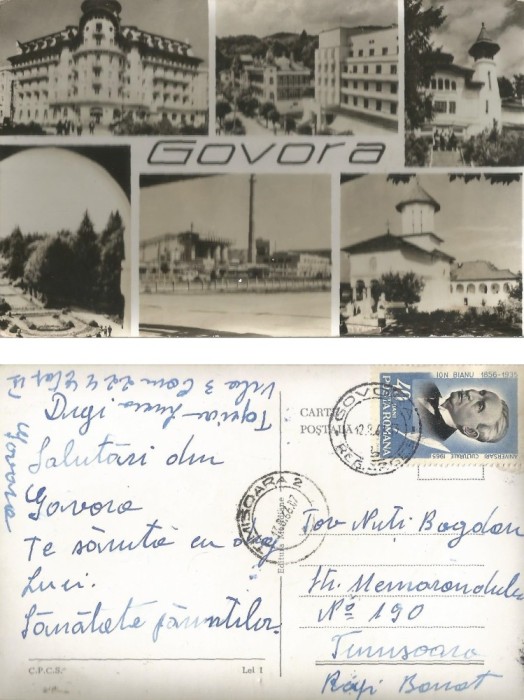 Govora
Vila 3 Cam 22
Dragi
Salutări din
Govora
Te sărută cu drag
Luci.
Sănătate părinților.
Govora
CARTE
POȘTALĂ
GOVORA
REG. ARGEȘ
ION BIANU 1856-1935
40 BANI
POSTA ROMANA
ANIVERSARI CULTURALE 1965
TIMIȘOARA 2
Tov Nuți Bogdan
Str. Memorandului
Nº 190
Timisoara
Raj. Banat
C.P.C.S.
Lei 1